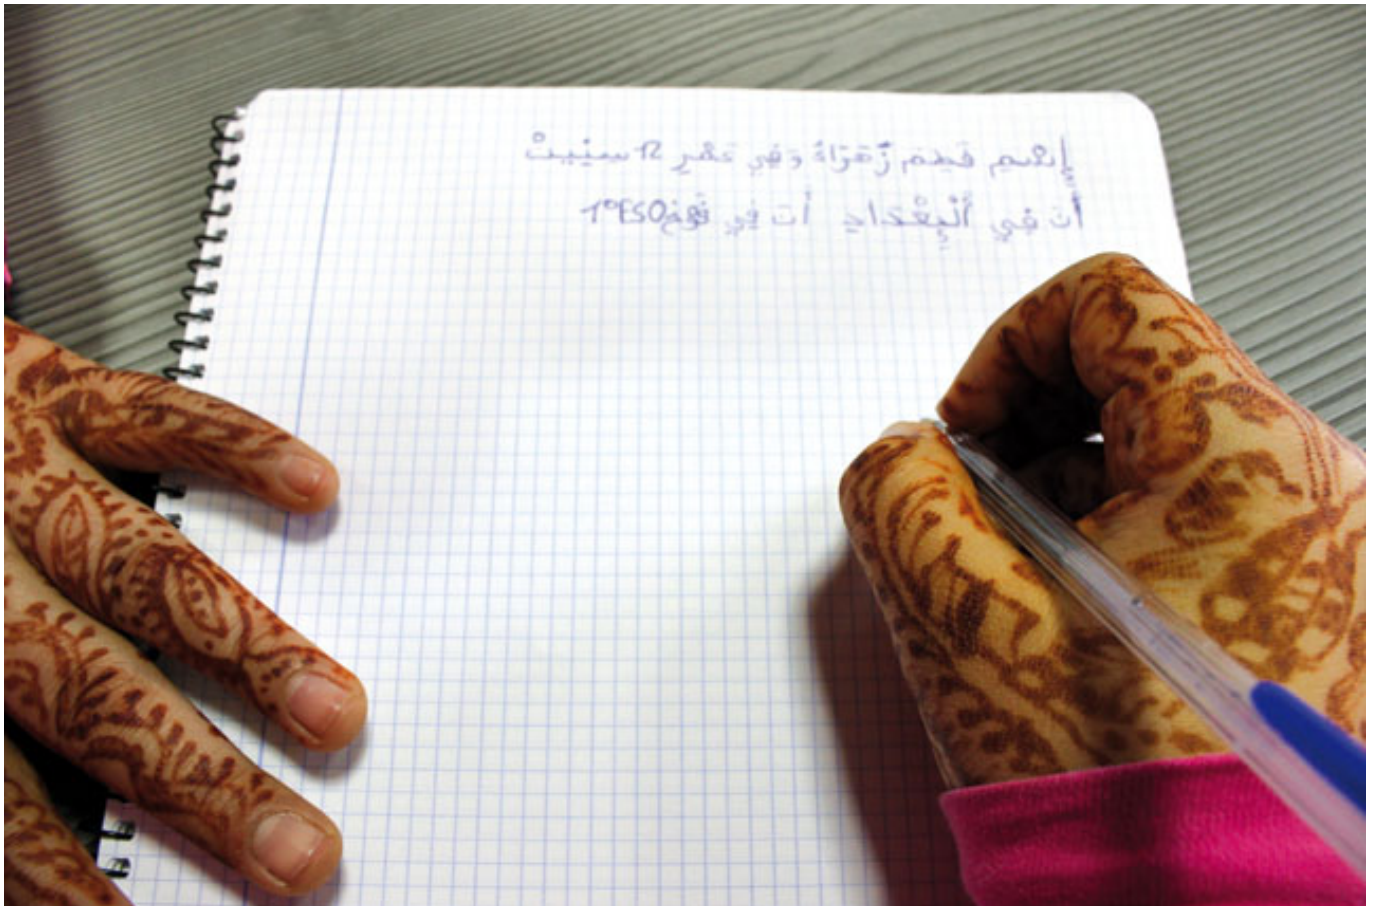 إسمِي فَطِمَ زَُهَرَاءُ وَفِي عَمْرِ 12 سنِيتْ
أنَ فِي ألْبِغْدَادِ أنَ فِي فَوْج 1ºESO